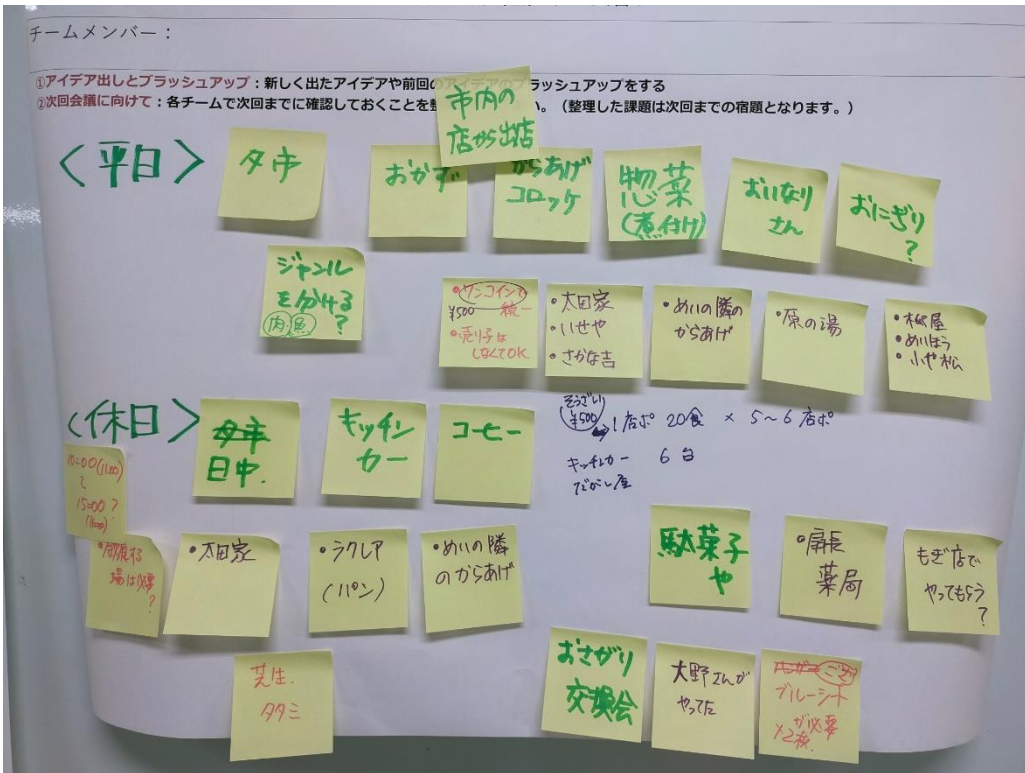 チームメンバー：
①アイデア出しとブラッシュアップ：新しく出たアイデアや前回の
ラッシュアップをする
②次回会議に向けて：各チームで次回までに確認しておくことを
い。（整理した課題は次回までの宿題となります。）
市内の
店から出店
＜平日＞
夕市
おかず
からあげ
コロッケ
惣菜
(煮付け)
おいなり
さん
おにぎり
?
ジャンル
を分ける
肉・魚
?
・ワンコインで
¥500 統一
・売り子は
しなくてOK
・太田家
・いせや
・さかな吉
・めいの隣の
からあげ
・原の湯
・めいほう
・小や松
そうざい
¥500
1店ポ 20食 × 5〜6店ポ
キッチンカー 6台
だがし屋
＜休日＞
夕市
日中.
キッチン
カー
コーヒー
10:00
15:00?
場は必要
?
・太田家
・ラクレア
(パン)
・めいの隣
のからあげ
駄菓子
や
薬局
もぎ店で
やってもらう
?
芝生.
タタミ
おさがり
交換会
大野さんが
やってた
ござ
ブルーシート
が必要
×2枚.